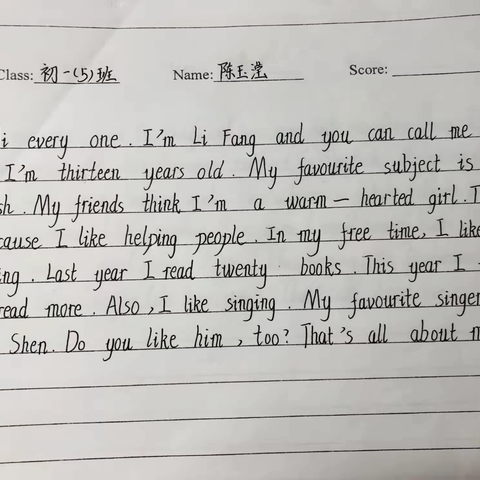 Class: 初一(5)班 Name: 陈玉滢 Score:
i every one. I'm Li Fang and you can call me
I'm thirteen years old. My favourite subject is
sh. My friends think I'm a warm-hearted girl. T
cause I like helping people. In my free time, I like
ing. Last year I read twenty books. This year I
read more. Also, I like singing. My favourite singer
Shen. Do you like him, too? That's all about m